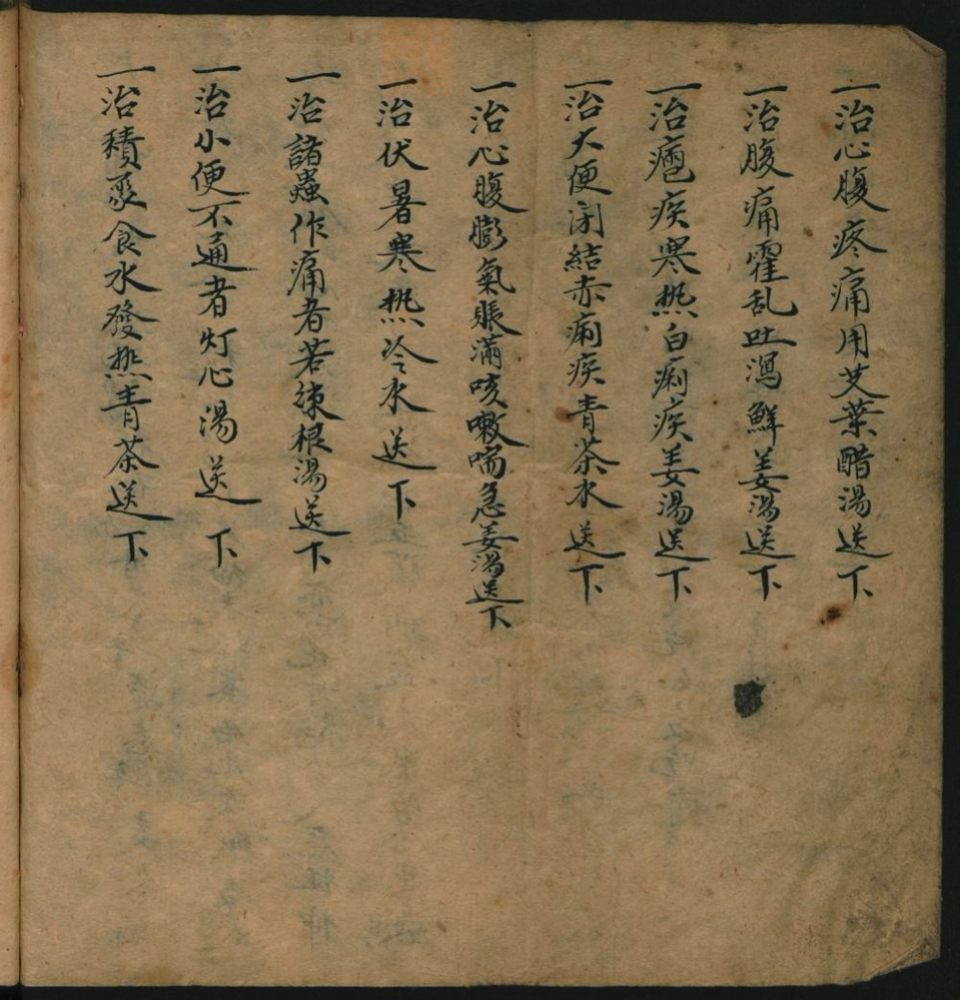 一治心腹疼痛用艾葉醋湯送下
一治腹痛霍乱吐瀉鮮姜湯送下
一治瘧疾寒热白痢疾姜湯送下
一治大便闭結赤痢疾青茶水送下
一治心腹膨氣賬滿咳嗽喘急姜湯送下
一治伏暑寒热冷水送下
一治諸蟲作痛者若楝根湯送下
一治小便不通者灯心湯送下
一治積聚食水發热青茶送下